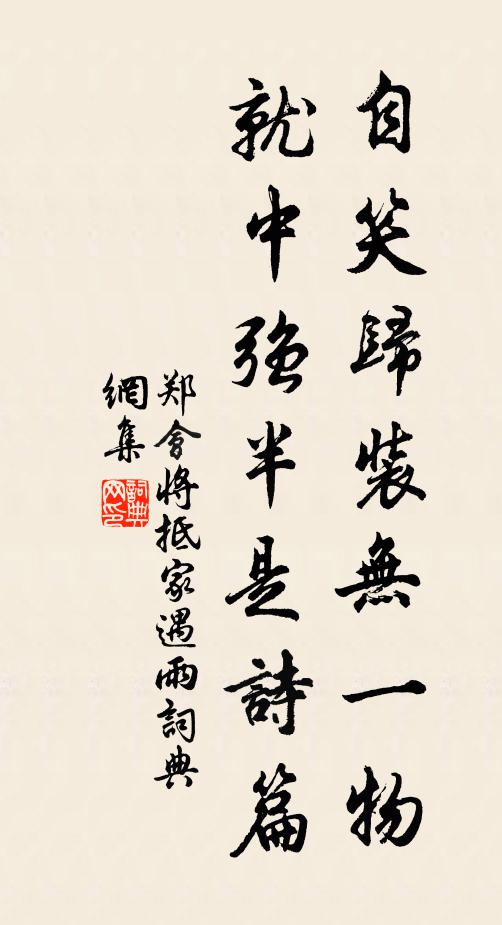 自笑歸裝無一物
就中強半是詩篇
郑會將抵家遇雨詞典
網集
詞典網印